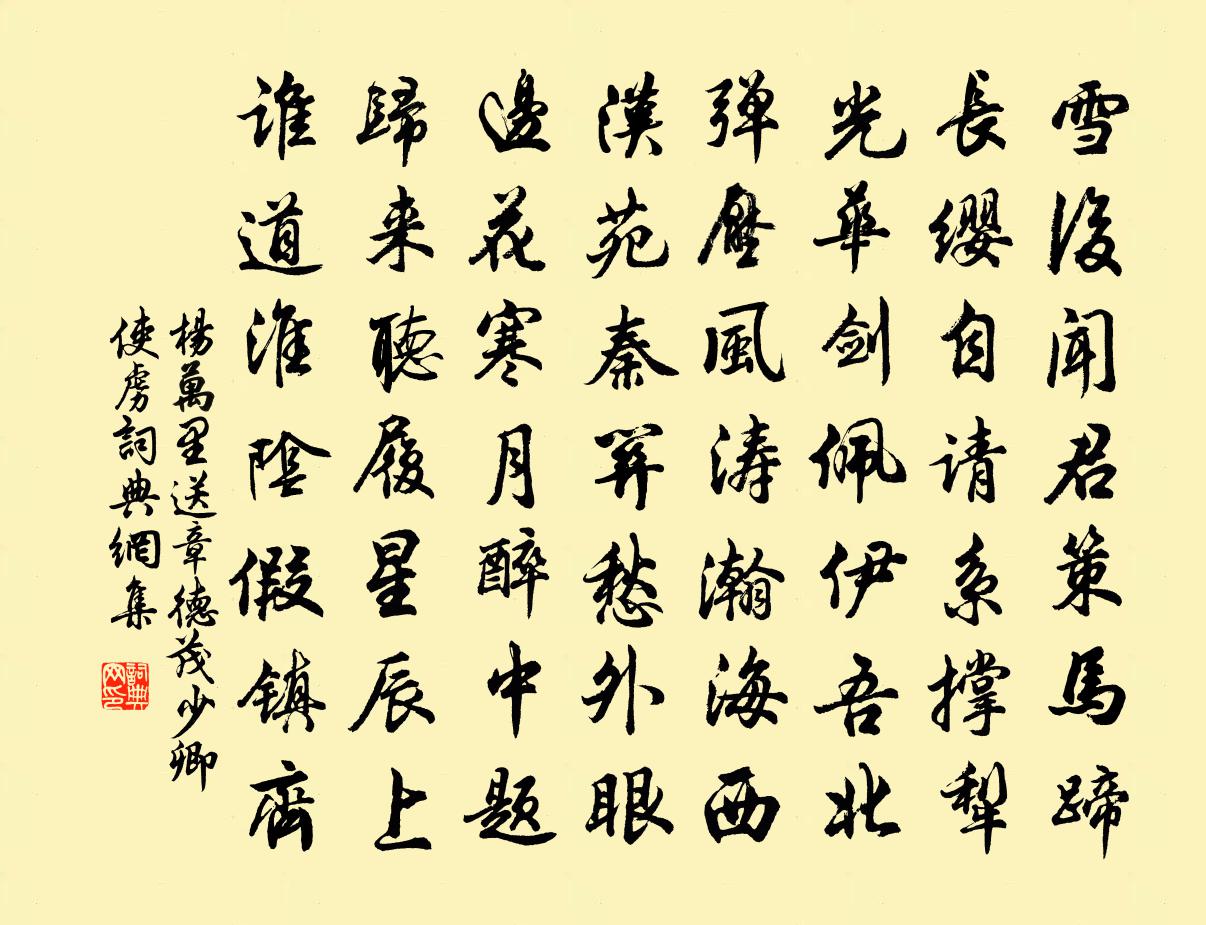 雪後聞君策馬蹄
長纓自请系撐犁
光華剑佩伊吾北
弹壓風涛瀚海西
漢苑秦關愁外眼
邊花寒月醉中题
歸来聽履星辰上
谁道淮陰假镇齊
楊萬里送章德茂少卿
使虜詞典網集
詞典
网印